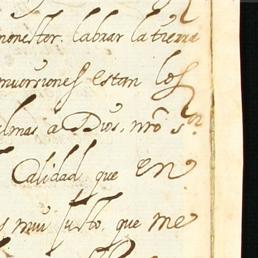 menester. labrar la tierra
conversiones estan los
almas a Dios. nro sor
calidad que en
es muy justo. que me